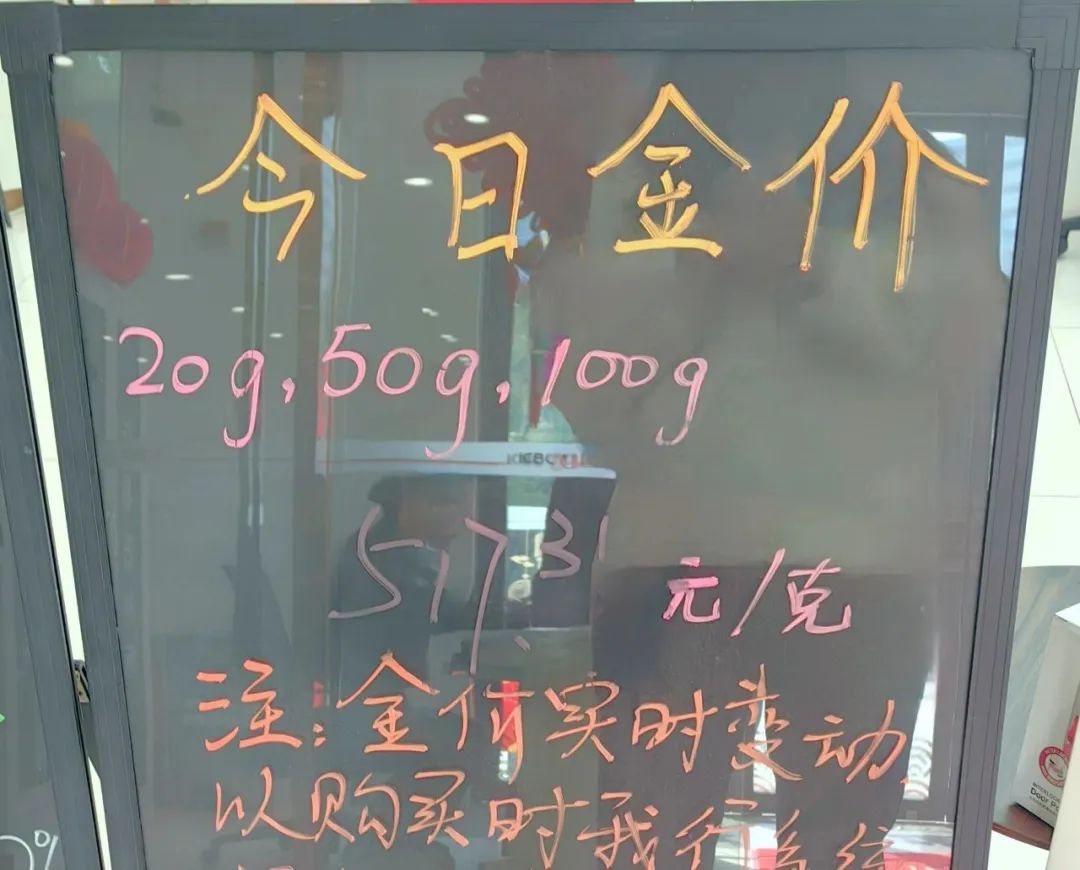 今日金价
20g,50g,100g
517.31 元/克
注:金价实时变动,
以购买时我行系统